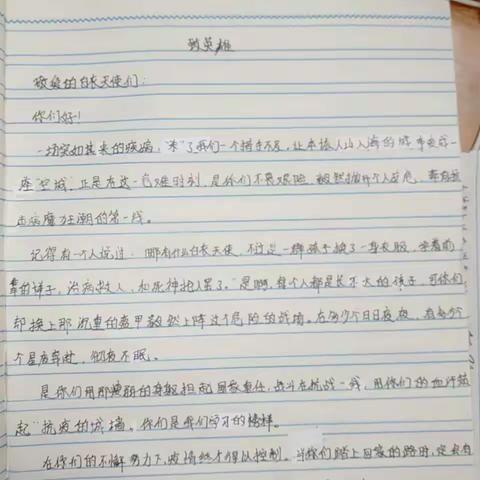 致英雄
敬爱的白衣天使们:
你们好!
一场突如其来的疾病,"来"了我们一个措手不及,让本该人山人海的城市变成一
座"空城"。正是在这一危难时刻,是你们不畏艰险,毅然抛开个人安危,奔赴抗
击病魔狂潮的第一线。
记得有一个人说过:哪有什么白衣天使,不过是一群孩子换了一身衣服,学着前
辈的样子,治病救人,和死神抢人罢了。"是啊,每个人都是长不大的孩子,可你们
却换上那沉重的盔甲毅然上阵这个危险的战场。在多少个日日夜夜,有多少
个星夜奔赴,彻夜不眠。
是你们用那瘦弱的身躯担起国家重任,战斗在抗战一线,用你们的血汗筑
起"抗疫的城墙。你们是我们学习的榜样。
在你们的不懈努力下,疫情终才得以控制。当你们踏上回家的路时,定会有